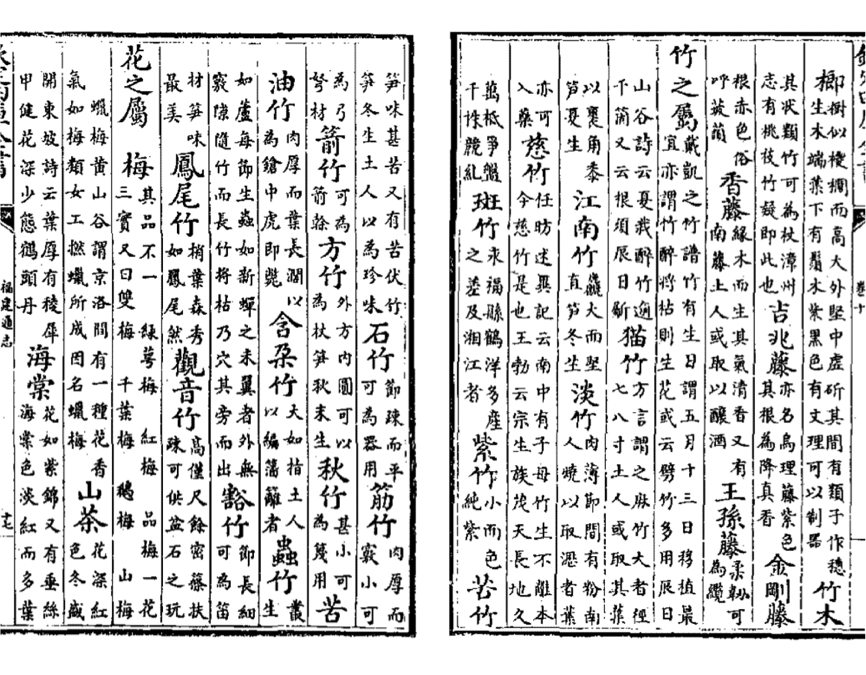 榔樹似椶櫚而高大外堅中虛斫其間有類子作穗
生木端葉下有鬚木紫黑色有文理可以制器
竹木
其狀類竹可為杖漳州
志有桃枝竹疑即此也
吉兆藤
亦名烏理藤紫色
其根為降真香
金剛藤
根赤色俗
呼菝
香藤
緣木而生其氣清香又有
南藤土人或取以釀酒
王孫藤
柔韌可
為纜
竹之屬
戴凱之竹譜竹有生日謂五月十三日移植最
宜亦謂竹醉將枯則生花或云劚竹多用辰日
山谷詩云夏栽醉竹逾
千箇又云根須辰日斸
猫竹
方言謂之麻竹大者徑
七八寸土人或取其葉
以裹角黍
笋夏生
江南竹
麄大而堅
直笋冬生
淡竹
肉薄節間有粉南
人燒以取瀝者葉
亦可
入藥
慈竹
任昉述異記云南中有子母竹生不離本
今慈竹是也王勃云宗生族茂天長地久
萬柢爭盤
千株競糺
斑竹
永福縣鶴洋多產
之差及湘江者
紫竹
小而色
純紫
苦竹
卷十
笋味甚苦又有苦伏竹
笋冬生土人以為珍味
石竹
節疎而平
可為器用
筋竹
肉厚而
竅小可
為弓
弩材
箭竹
可為
箭榦
方竹
外方内圓可以
為杖笋秋末生
秋竹
甚小可
為篾用
苦
油竹
肉厚而葉長濶以
為鎗中虎即斃
含朶竹
大如指土人
以編籓籬者
蟲竹
叢
生
如蘆每節生蟲如新蟬之未翼者外無
竅隙隨竹而長竹將枯乃穴其旁而出
谿竹
節長細
可為笛
材笋味
最美
鳳尾竹
梢葉森秀
如鳳尾然
觀音竹
高僅尺餘密篠扶
疎可供盆石之玩
花之屬
梅
其品不一 緑萼梅 紅梅 品梅一花
三實又曰雙梅 千葉梅 鴛梅 山梅
蠟梅黄山谷謂京洛間有一種花香
氣如梅類女工撚蠟所成因名蠟梅
山茶
花深紅
色冬盛
開東坡詩云葉厚有稜犀
甲健花深少態鶴頭丹
海棠
花如紫錦又有垂絲
海棠色淡紅而多葉
福建通志